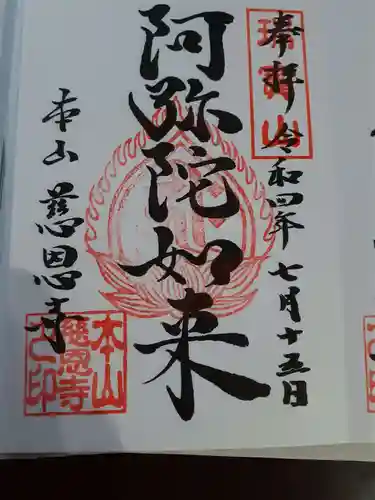 奉拝 令和四年七月十五日
瑞寳山
阿弥陀如来
本山 慈恩寺
本山
慈恩寺
之印